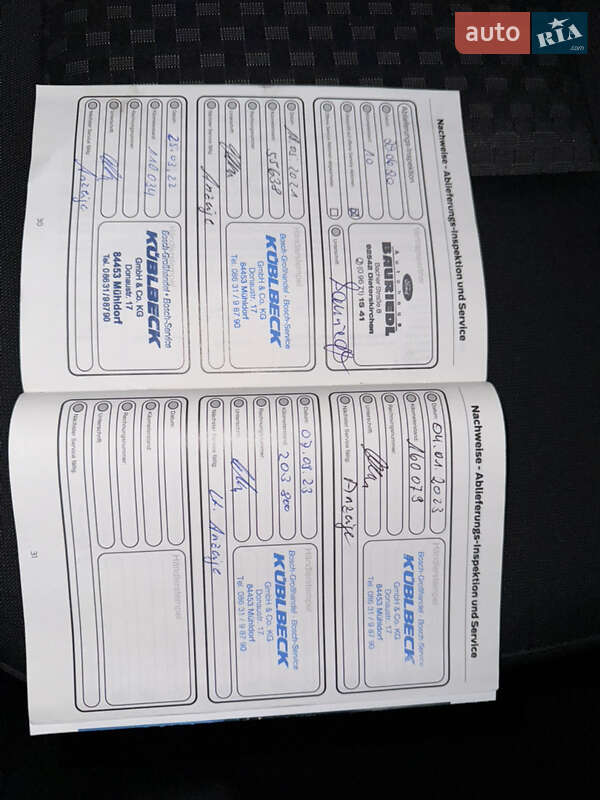 auto RIA .com
Nachweise - Ablieferungs-Inspektion und Service
Ablieferungs-Inspektion
Datum:
Kilometerstand:
10
Unterschrift:
Ford
Autohaus
BAURIEDL
82542 Dieterskirchen
Datum:
Kilometerstand:
55638
Rechnungsnummer:
Unterschrift:
Nächster Service fällig:
Anzeige
Händlerstempel
Bosch-Großhandel - Bosch-Service
KÜBLBECK
GmbH & Co. KG
Donaustr. 17
84453 Mühldorf
Tel. 086 31 / 9 87 90
Datum:
25.03.22
Kilometerstand:
118 034
Rechnungsnummer:
Unterschrift:
Nächster Service fällig:
Anzeige
Bosch-Großhandel • Bosch-Service
KÜBLBECK
GmbH & Co. KG
Donaustr. 17
84453 Mühldorf
Tel. 08631/98790
30
Nachweise - Ablieferungs-Inspektion und Service
Datum:
04.01.2023
Kilometerstand:
160079
Rechnungsnummer:
Unterschrift:
Nächster Service fällig:
Anzeige
Händlerstempel
Bosch-Großhandel - Bosch-Service
KÜBLBECK
GmbH & Co. KG
Donaustr. 17
84453 Mühldorf
Tel. 086 31 / 9 87 90
Datum:
Kilometerstand:
203 800
Rechnungsnummer:
Unterschrift:
Nächster Service fällig:
lt. Anzeige
Händlerstempel
Bosch-Großhandel - Bosch-Service
KÜBLBECK
GmbH & Co. KG
Donaustr. 17
84453 Mühldorf
Tel. 086 31 / 9 87 90
Datum:
Kilometerstand:
Rechnungsnummer:
Unterschrift:
Nächster Service fällig:
Händlerstempel
31